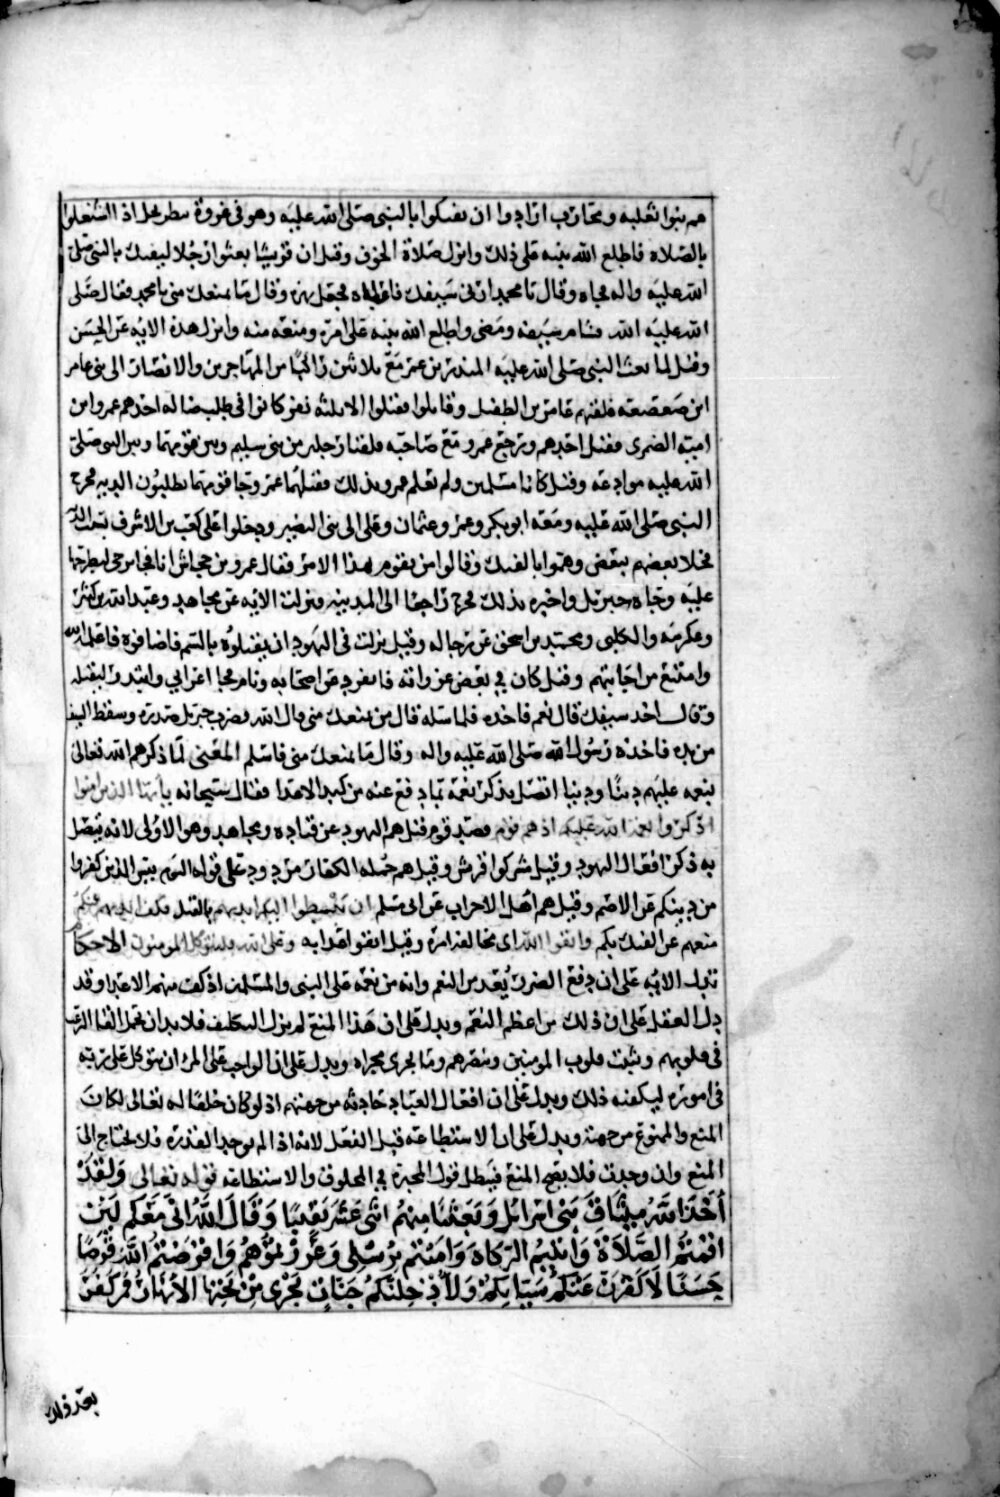 هم بنوا ثعلبه ومحارب ارادوا ان يفتكوا بالنبي صلى الله عليه وهو في غزوة بطن نخل اذا اشتغلوا
بالصلاه فاطلع الله نبيه على ذلك وانزل صلاة الخوف وقيل ان قريشا بعثوا رجلا ليفتك بالنبي صلى
الله عليه واله فجاه وقال يا محمد ارني سيفك فاعطاه فجعل يهزه وقال ما يمنعك مني يا محمد فقال صلى
الله عليه الله فشام سيفه ومضى واطلع الله نبيه على امره ومنعه منه وانزل هذه الايه عن الحسن
وقيل لما بعث النبي صلى الله عليه المنذر بن عمرو مع ثلاثين راكبا من المهاجرين والانصار الى بني عامر
ابن صعصعه فلقيهم عامر بن الطفيل وقاتلوا فقتلوا الا ثلثه نفر كانوا في طلب ضاله احدهم عمرو ابن
اميه الضمري فقتل احدهم ورجع عمرو مع صاحبه فلقيا رجلين من بني سليم وبين قومهما وبين النبي صلى
الله عليه موادعه وقيل كانا مسلمين ولم يعلم عمرو بذلك فقتلهما عمرو وجا قومهما يطلبون الديه فخرج
النبي صلى الله عليه ومعه ابو بكر وعمر وعثمان وعلي الى بني النضير ودخلوا على كعب بن الاشرف
فخلا بعضهم ببعض وهموا بالفتك وقالوا من يقوم بهذا الامر فقال عمرو بن جحاش انا فجا برحى ليطرحها
عليه وجاه جبريل واخبره بذلك فخرج راجعا الى المدينه ونزلت الايه عن مجاهد وعبد الله بن كثير
وعكرمه والكلبي ومحمد بن اسحق عن رجاله وقيل نزلت في اليهود ان يقتلوه بالسم فاضافوه فاعلمه الله
وامتنع من اجابتهم وقيل كان في بعض غزواته فانفرد عن اصحابه ونام فجا اعرابي وابتدر ليقتله
وقال اخذ سيفك قال نعم فاخذه فلما سله قال من يمنعك مني قال الله فضرب جبريل صدره وسقط السيف
من يده فاخذه رسول الله صلى الله عليه واله وقال ما يمنعك مني فاسلم المعنى لما ذكرهم الله تعالى
نعمه عليهم دينا ودنيا اتصل بذكر نعمه بما دفع عنه من كيد الاعدا فقال سبحانه يا أيها الذين امنوا
اذكروا نعمة الله عليكم اذ هم قوم قصد قوم قيل هم اليهود عن قتاده ومجاهد وهو الاولى لانه يتصل
به ذكر افعال اليهود وقيل مشركوا قريش وقيل هم جمله الكفار مردود على قوله اليوم يئس الذين كفروا
من دينكم عن الاصم وقيل هم اهل الاحزاب عن ابي مسلم ان يبسطوا اليكم ايديهم بالقتل فكف ايديهم عنكم
منعهم عن الفتك بكم واتقوا الله اي مخالفه امره وقيل اتقوا عذابه وعلى الله فليتوكل المومنون الاحكام
تدل الايه على ان دفع الضرر يعد من النعم وانه من نعمه على النبي والمسلمين اذ كف عنهم الاعدا وقد
دل العقل على ان ذلك من اعظم النعم ويدل على ان هذا المنع لم يزل التكليف فلا بد ان يحمل القا الرعب
في قلوبهم وتثبت قلوب المومنين ونصرهم وما يجري مجراه ويدل على ان الواجب على المرء ان يتوكل على ربه
في اموره ليكفيه ذلك ويدل على ان افعال العباد حادثه من جهتهم اذ لو كان خلقا له تعالى لكان
المنع والممنوع من جهته ويدل على ان الاستطاعه قبل الفعل لانه اذا لم يوجد القدره فلا يحتاج الى
المنع وان وجدت فلا يصح المنع فيبطل قول المجبرة في المخلوق والاستطاعه قوله تعالى وَلَقَدْ
أَخَذَ اللَّهُ مِيثَاقَ بَنِي اسرائيل وَبَعَثْنَا مِنْهُمُ اثْنَي عَشَرَ نَقِيبًا وَقَالَ اللَّهُ انِّي مَعَكُم لَئِنْ
اقَمْتُمُ الصَّلَاةَ وَاتَيْتُمُ الزَّكَاةَ وَامَنْتُم بِرُسُلِي وَعَزَّرْتُمُوهُمْ وَاقْرَضْتُمُ اللَّهَ قَرْضًا
حَسَنًا لَأُكَفِّرَنَّ عَنْكُمْ سَيِّئَاتِكُمْ وَلَأُدْخِلَنَّكُمْ جَنَّاتٍ تَجْرِي مِنْ تَحْتِهَا الْأَنْهَارُ فَمَنْ كَفَرَ
بعد ذلك